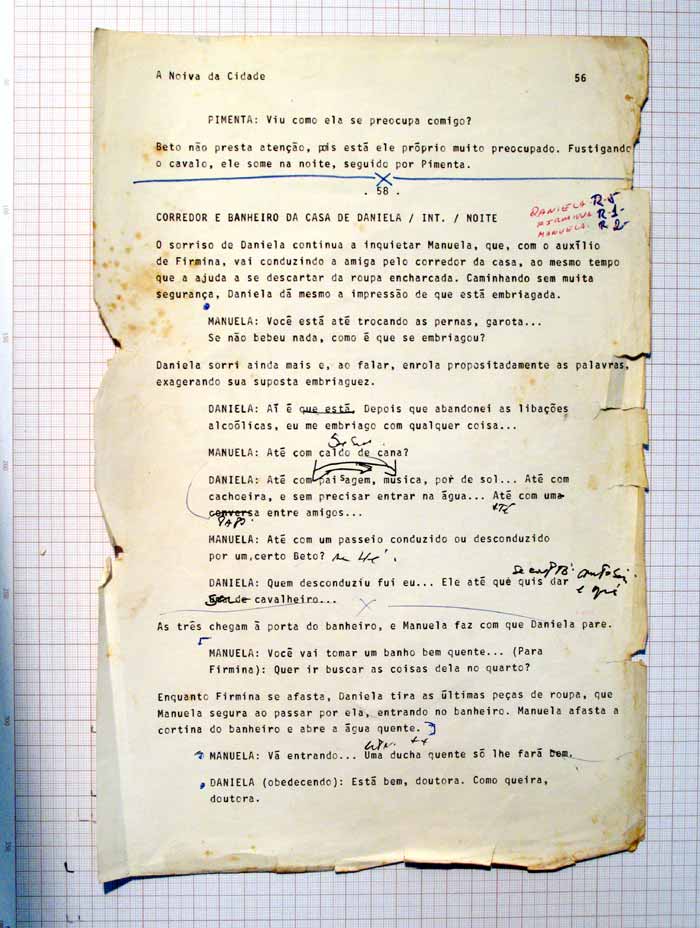 A Noiva da Cidade 56
PIMENTA: Viu como ela se preocupa comigo?
Beto não presta atenção, pois está ele próprio muito preocupado. Fustigando
o cavalo, ele some na noite, seguido por Pimenta.
. 58 .
DANIELA R-5
FIRMINA R-1-
MANUELA. R 2-
CORREDOR E BANHEIRO DA CASA DE DANIELA / INT. / NOITE
O sorriso de Daniela continua a inquietar Manuela, que, com o auxílio
de Firmina, vai conduzindo a amiga pelo corredor da casa, ao mesmo tempo
que a ajuda a se descartar da roupa encharcada. Caminhando sem muita
segurança, Daniela dá mesmo a impressão de que está embriagada.
MANUELA: Você está até trocando as pernas, garota...
Se não bebeu nada, como é que se embriagou?
Daniela sorri ainda mais e, ao falar, enrola propositadamente as palavras,
exagerando sua suposta embriaguez.
DANIELA: Aí é que está. Depois que abandonei as libações
alcoólicas, eu me embriago com qualquer coisa...
MANUELA: Até com caldo de cana?
DANIELA: Até com paisagem, música, pôr de sol... Até com
cachoeira, e sem precisar entrar na água... Até com uma
conversa entre amigos...
PAPO
MANUELA: Até com um passeio conduzido ou desconduzido
por um certo Beto?
DANIELA: Quem desconduziu fui eu... Ele até que quis dar
cavalheiro...
As três chegam à porta do banheiro, e Manuela faz com que Daniela pare.
MANUELA: Você vai tomar um banho bem quente... (Para
Firmina): Quer ir buscar as coisas dela no quarto?
Enquanto Firmina se afasta, Daniela tira as últimas peças de roupa, que
Manuela segura ao passar por ela, entrando no banheiro. Manuela afasta a
cortina do banheiro e abre a água quente.
MANUELA: Vá entrando... Uma ducha quente só lhe fará bem.
DANIELA (obedecendo): Está bem, doutora. Como queira,
doutora.